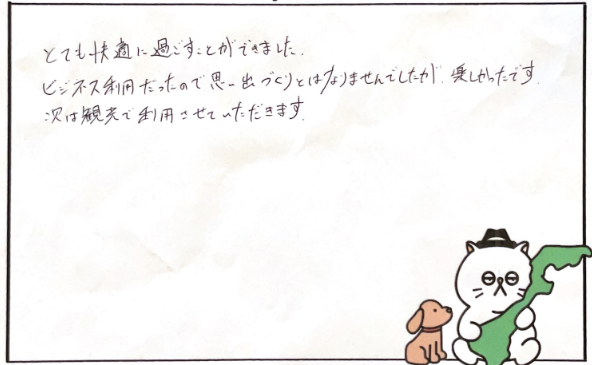 とても快適に過ごすことができました.
ビジネス利用だったので思い出づくりとはなりませんでしたが、楽しかったです.
次は観光で利用させていただきます.